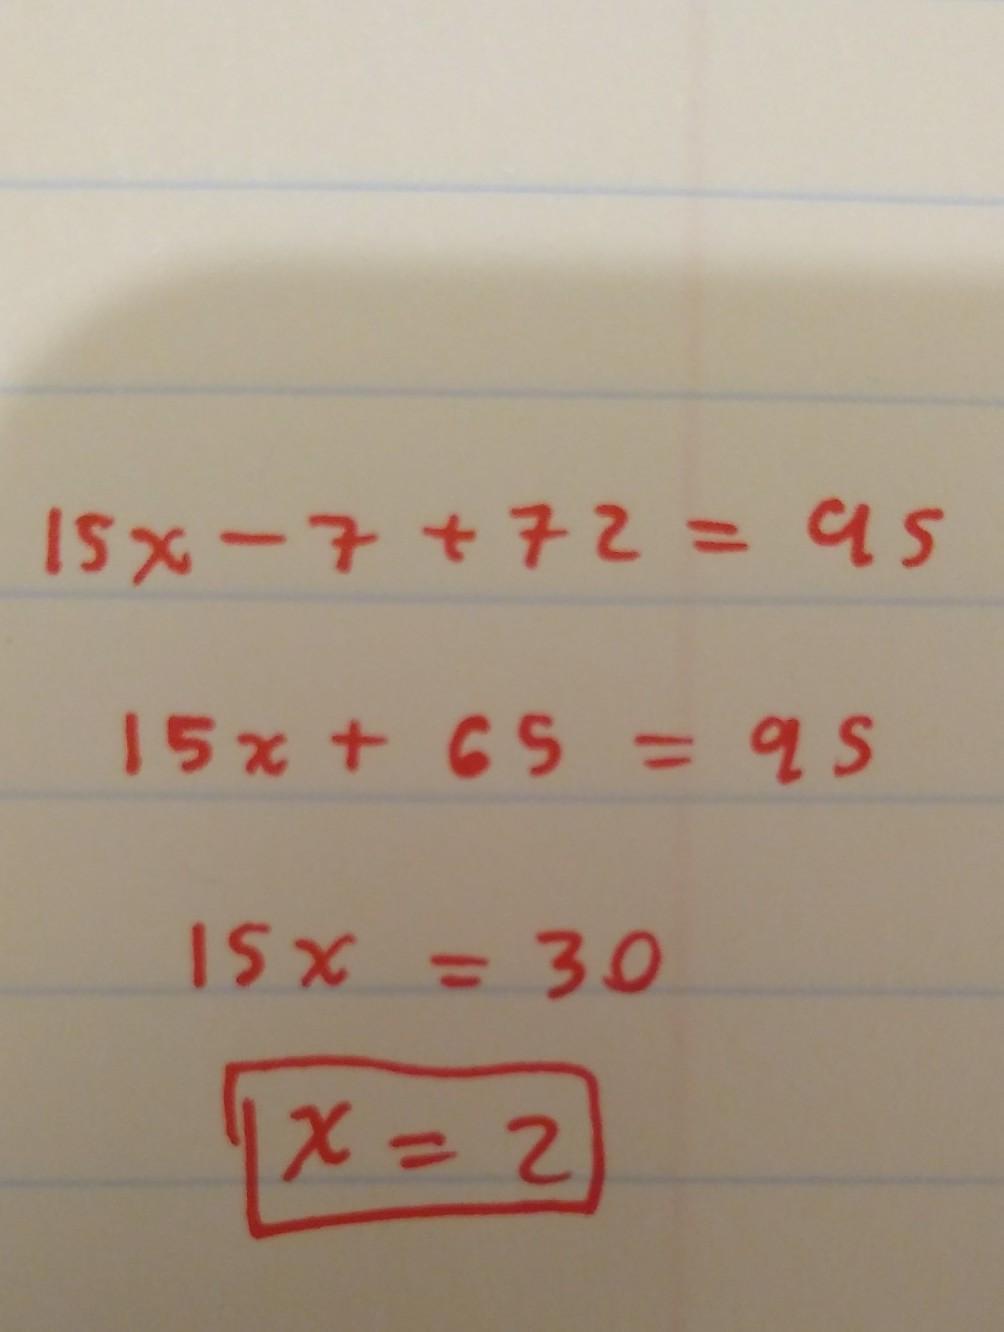 15x - 7 + 72 = 95
15x + 65 = 95
15x = 30
x = 2